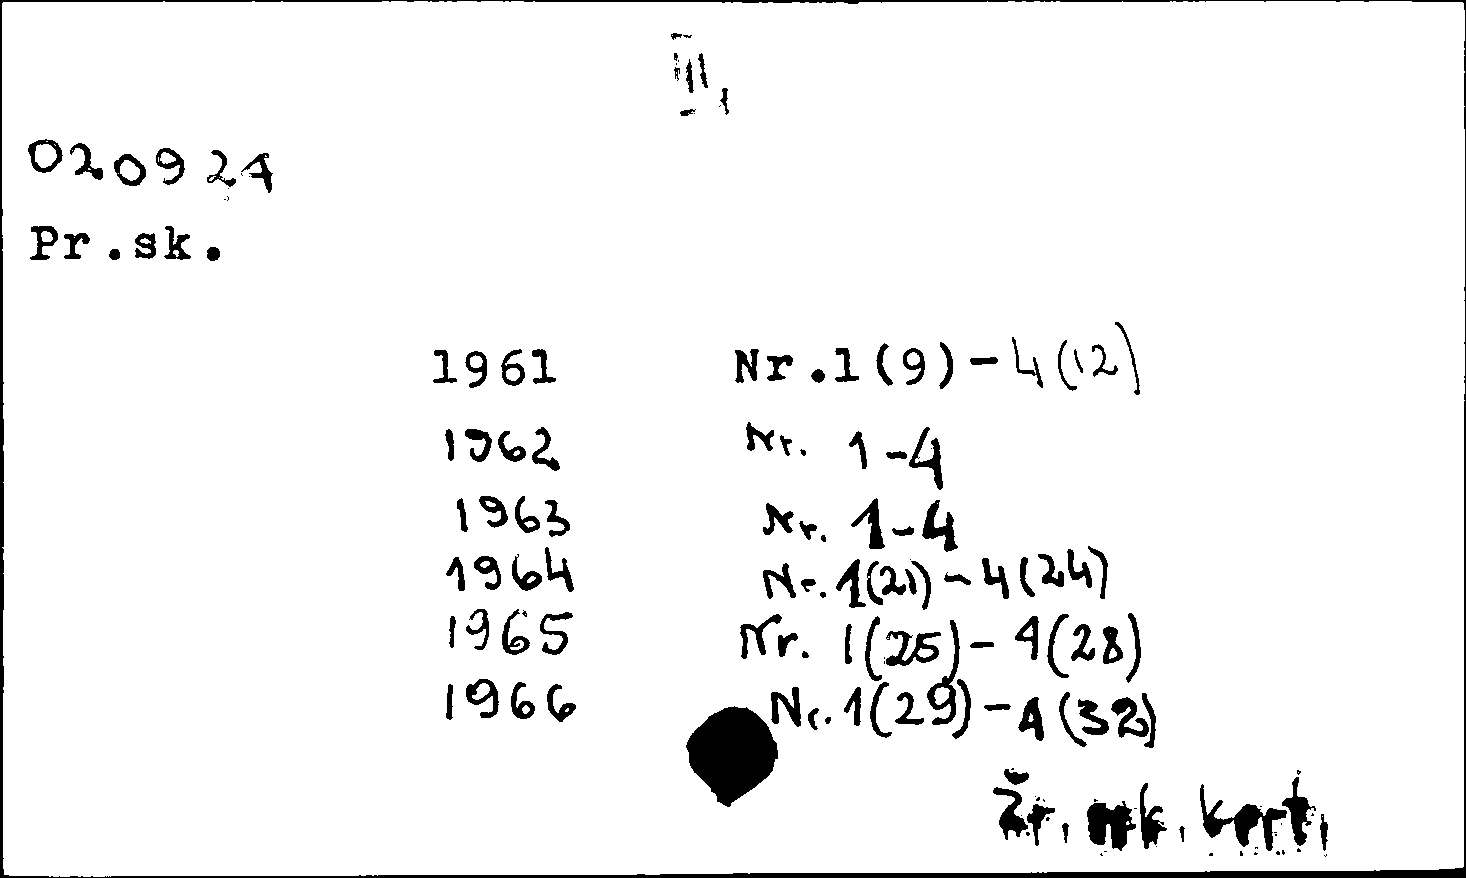 III,
020924
Pr.sk.
1961 Nr.1(9)-4(12)
1962 Nr. 1-4
1963 Nr. 1-4
1964 Nr. 1(21)-4(24)
1965 Nr. 1(25)-4(28)
1966 Nr. 1(29)-4(32)
Žr. sek. kort.